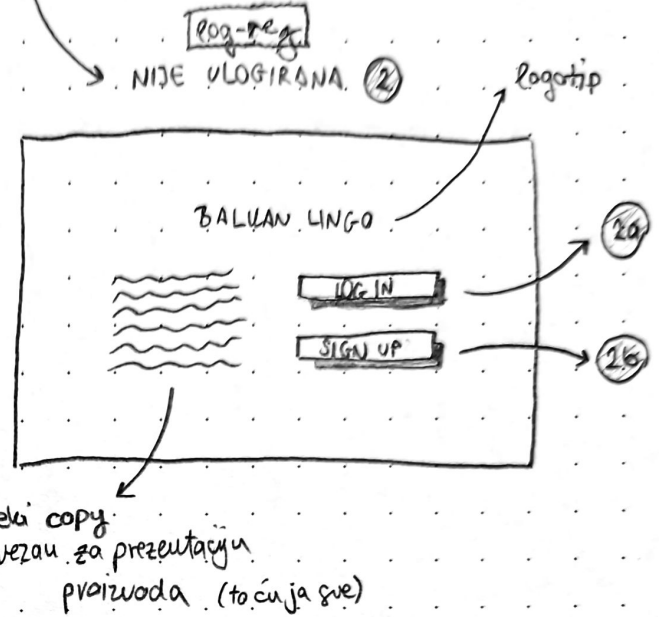 log-reg
NIJE ULOGIRANA 2
logotip
BALKAN LINGO
2a
LOG IN
SIGN UP
2b
eki copy
vezan za prezentaciju
proizvoda (to ću ja sve)